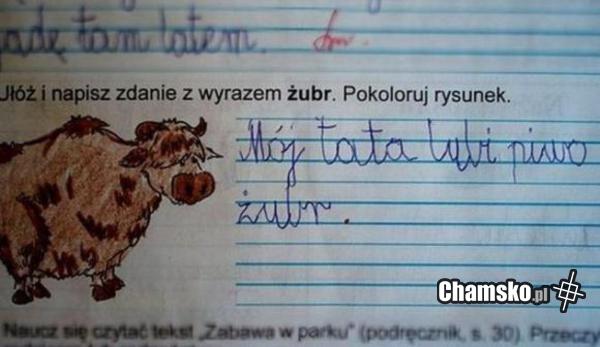 jadę tam latem.
Ułóż i napisz zdanie z wyrazem żubr. Pokoloruj rysunek.
Mój tata lubi piwo
żubr.
Chamsko.pl
Naucz się czytać tekst „Zabawa w parku” (podręcznik, s. 30). Przeczy